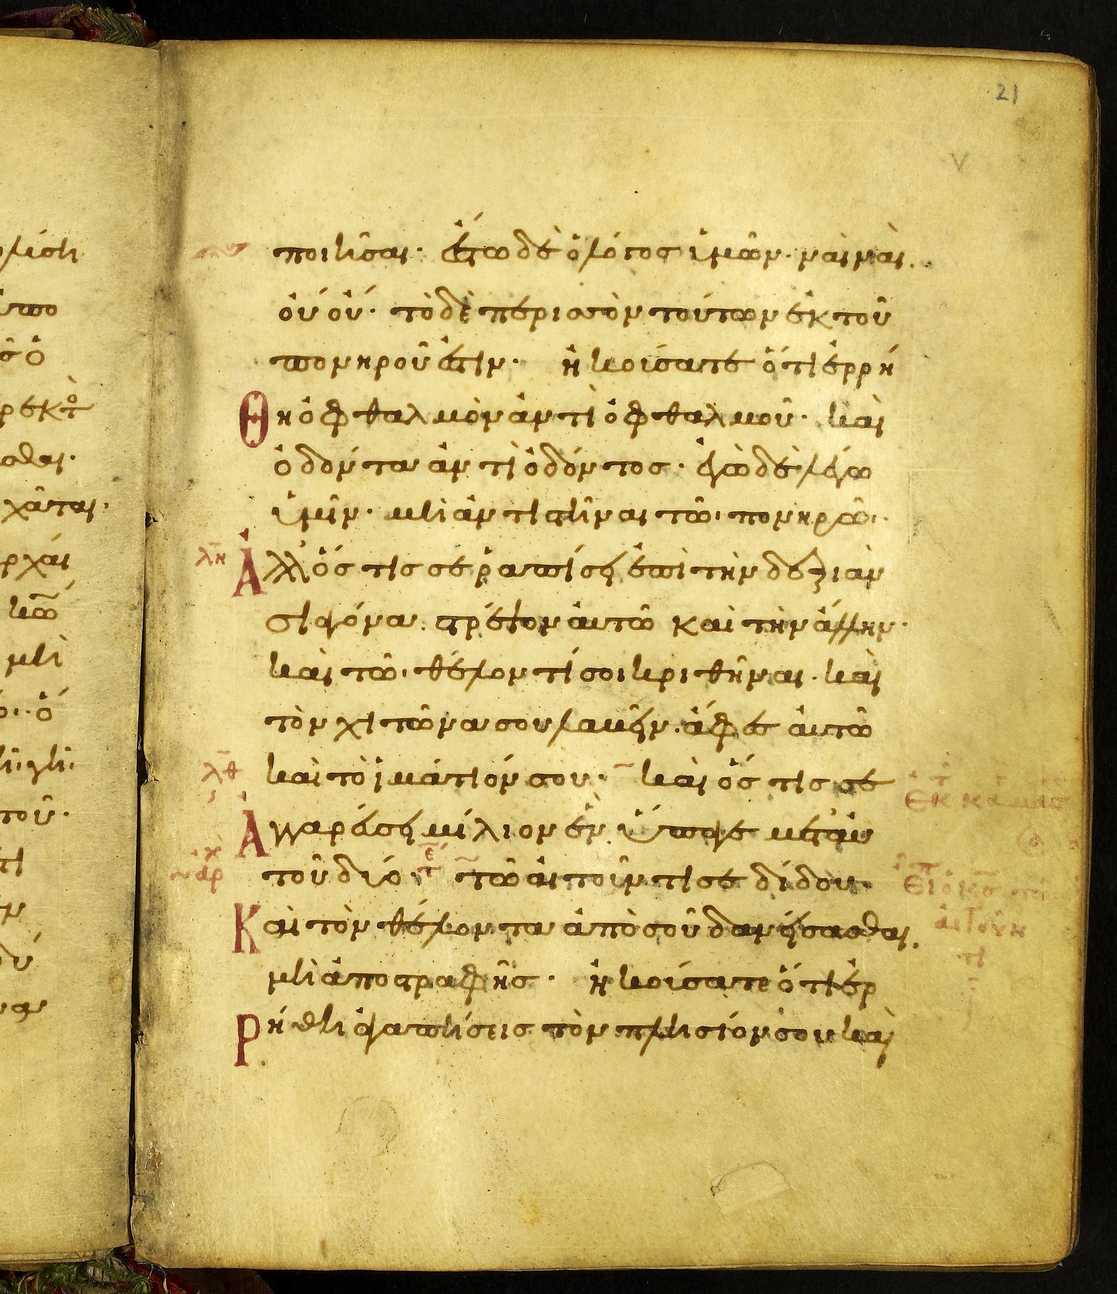 21
ποιῆσαι· ἔστω δὲ ὁ λόγος ὑμῶν· ναὶ ναὶ·
οὐ οὐ· τὸ δὲ περισσὸν τούτων ἐκ τοῦ
πονηροῦ ἐστιν· ἠκούσατε ὅτι ἐρρή
Θη ὀφθαλμὸν ἀντὶ ὀφθαλμοῦ· καὶ
ὀδόντα ἀντὶ ὀδόντος· ἐγὼ δὲ λέγω
ὑμῖν· μὴ ἀντιστῆναι τῶ πονηρῶ·
λη Ἀλλ' ὅστις σε ῥαπίσει ἐπὶ τὴν δεξιὰν
σιαγόνα στρέψον αὐτῶ καὶ τὴν ἄλλην·
καὶ τῶ θέλοντί σοι κριθῆναι· καὶ
τὸν χιτῶνα σου λαβεῖν· ἄφες αὐτῶ
λθ καὶ τὸ ἱμάτιόν σου· καὶ ὅστις σε
Ἀγγαρεύσει μίλιον ἓν ὕπαγε μετ' αὐ
τοῦ δύο· τῶ αἰτοῦντι σε δίδου·
Καὶ τὸν θέλοντα ἀπὸ σοῦ δανείσασθαι
μὴ ἀποστραφῆς· ἠκούσατε ὅτι ἐρ
Ρήθη ἀγαπήσεις τὸν πλησίον σου καὶ